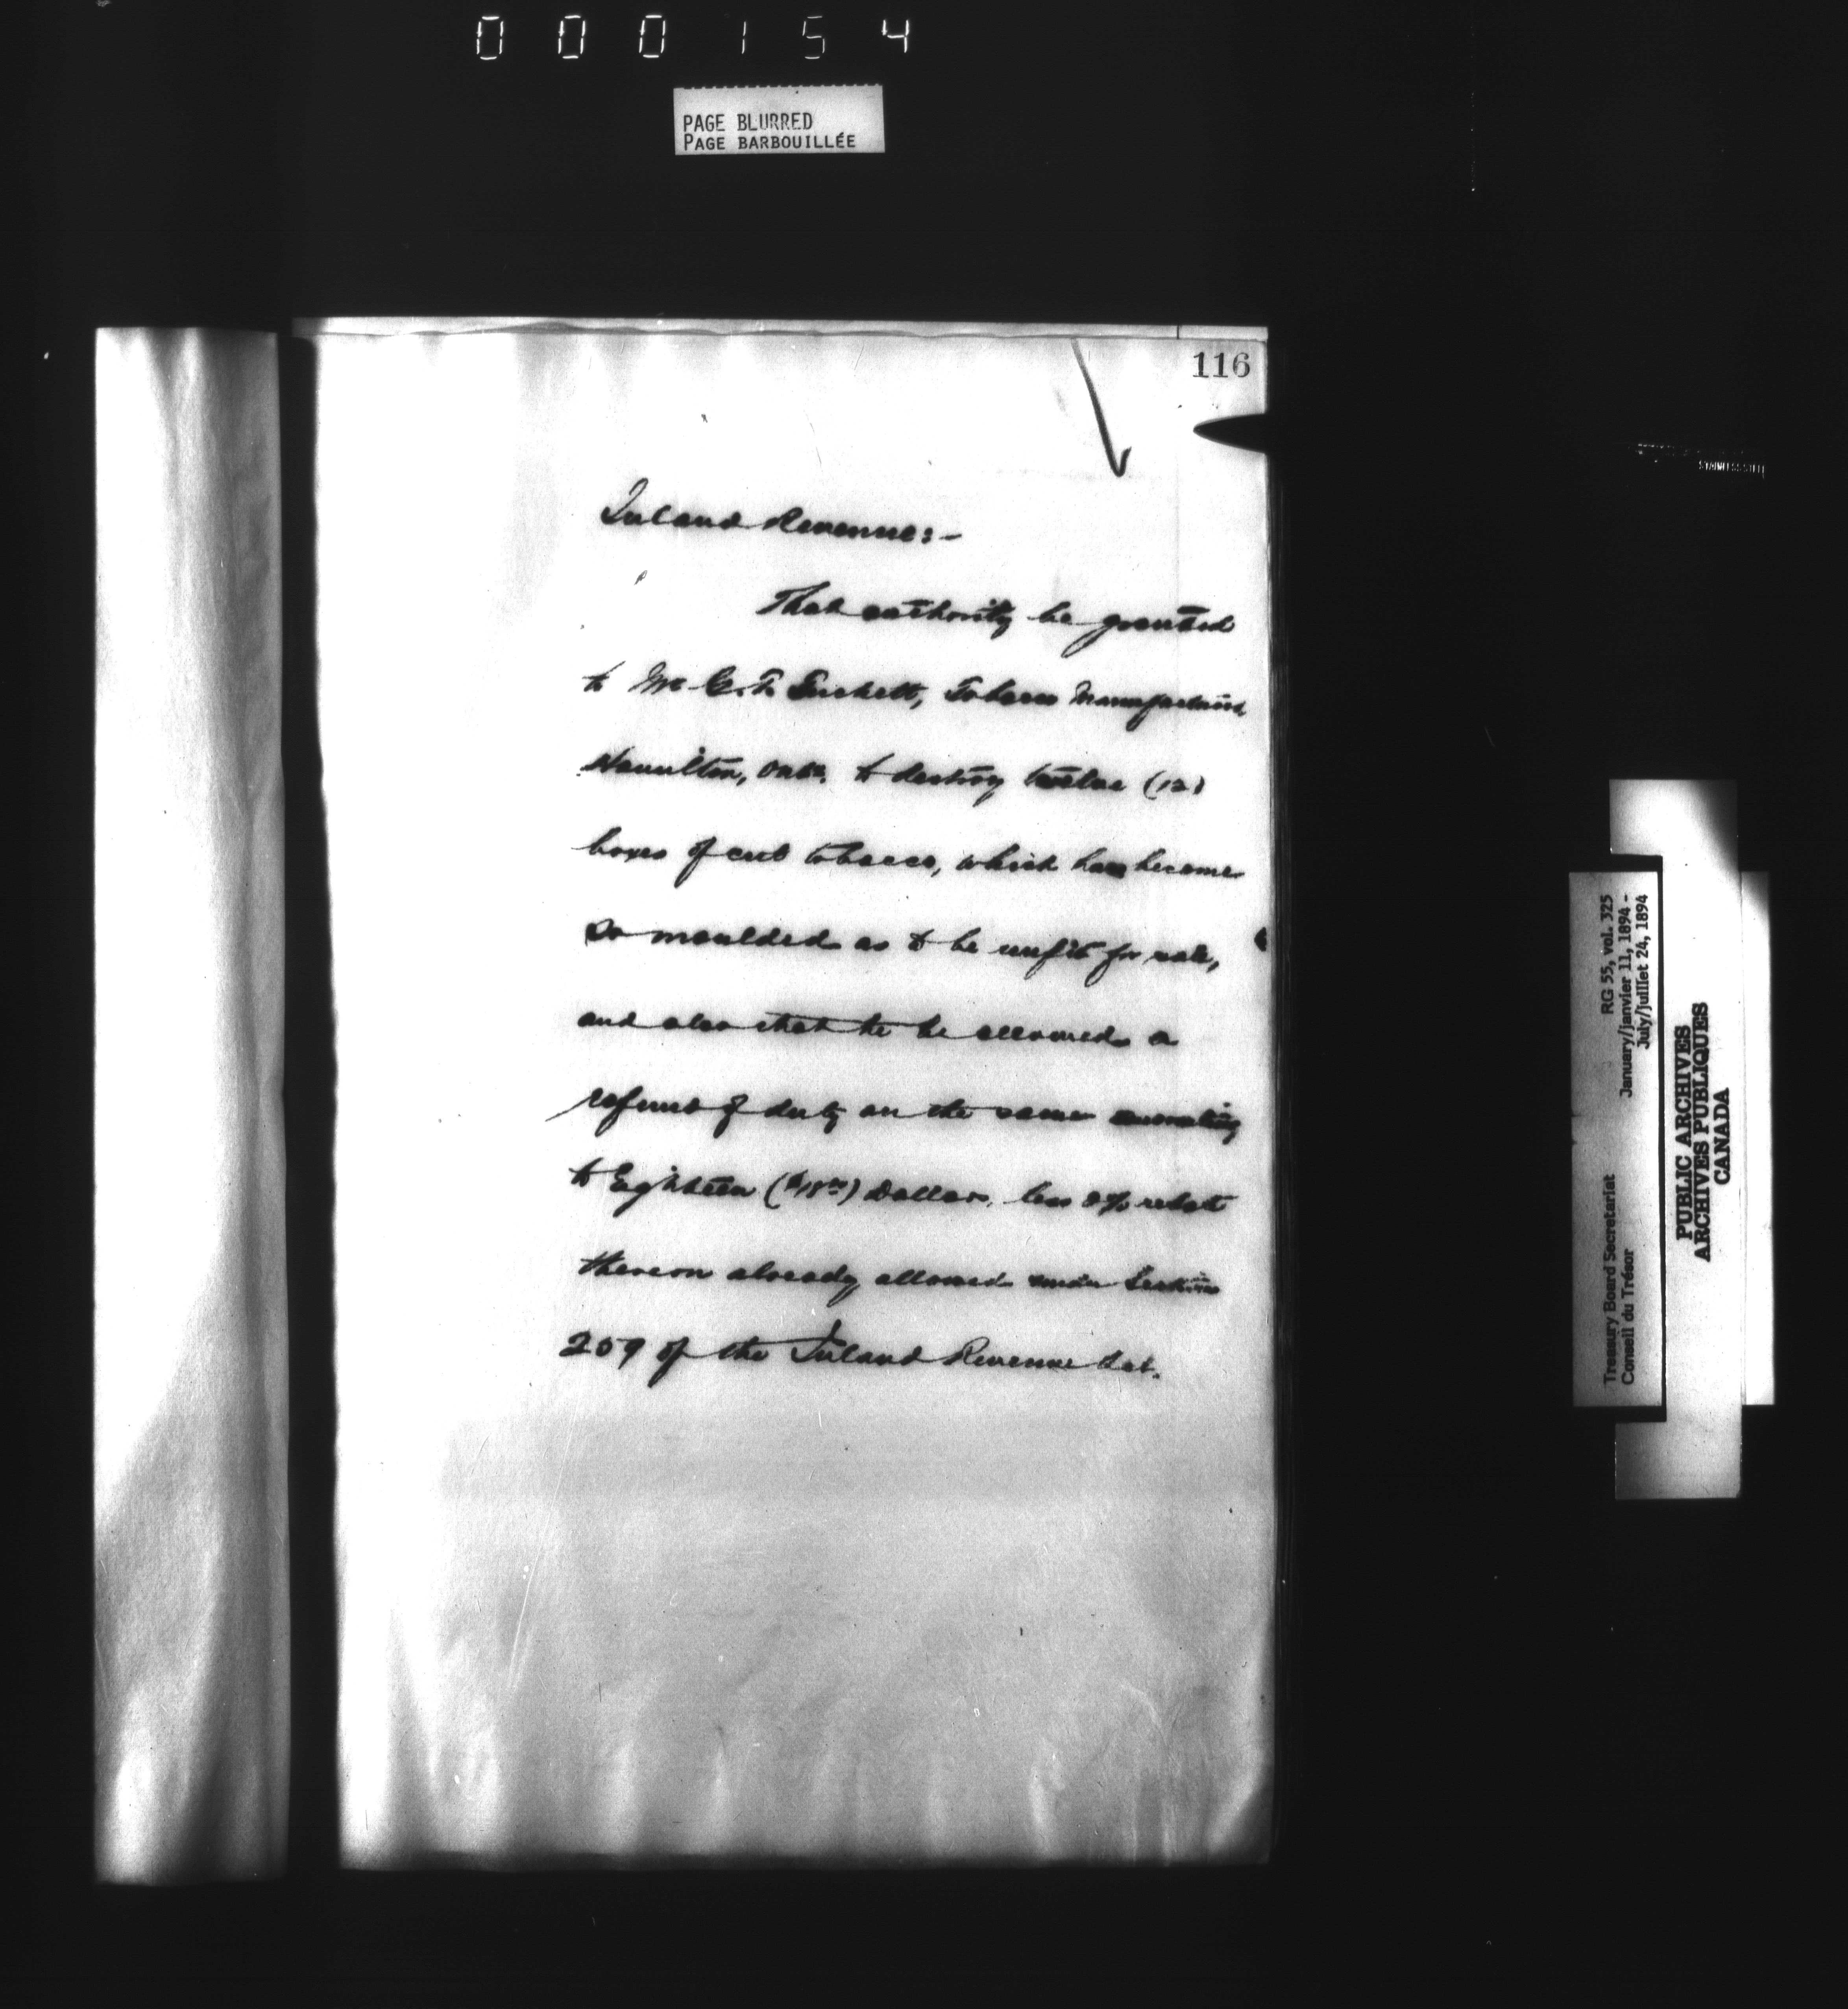 000154
PAGE BLURRED
PAGE BARBOUILLÉE
116
Inland Revenue:-
That authority be granted
to Mr G. T. Tuckett, Tobacco Manufacturer
Hamilton, Ont. to destroy twelve (12)
boxes of cut tobacco, which have become
so moulded as to be unfit for sale,
and also that he be allowed a
refund of duty on the same amounting
to Eighteen ($18.00) Dollars, less 2% rebate
thereon already allowed under Section
259 of the Inland Revenue Act.
Treasury Board Secretariat RG 55, vol. 325
Conseil du Trésor January/janvier 11, 1894 -
July/juillet 24, 1894
PUBLIC ARCHIVES
ARCHIVES PUBLIQUES
CANADA